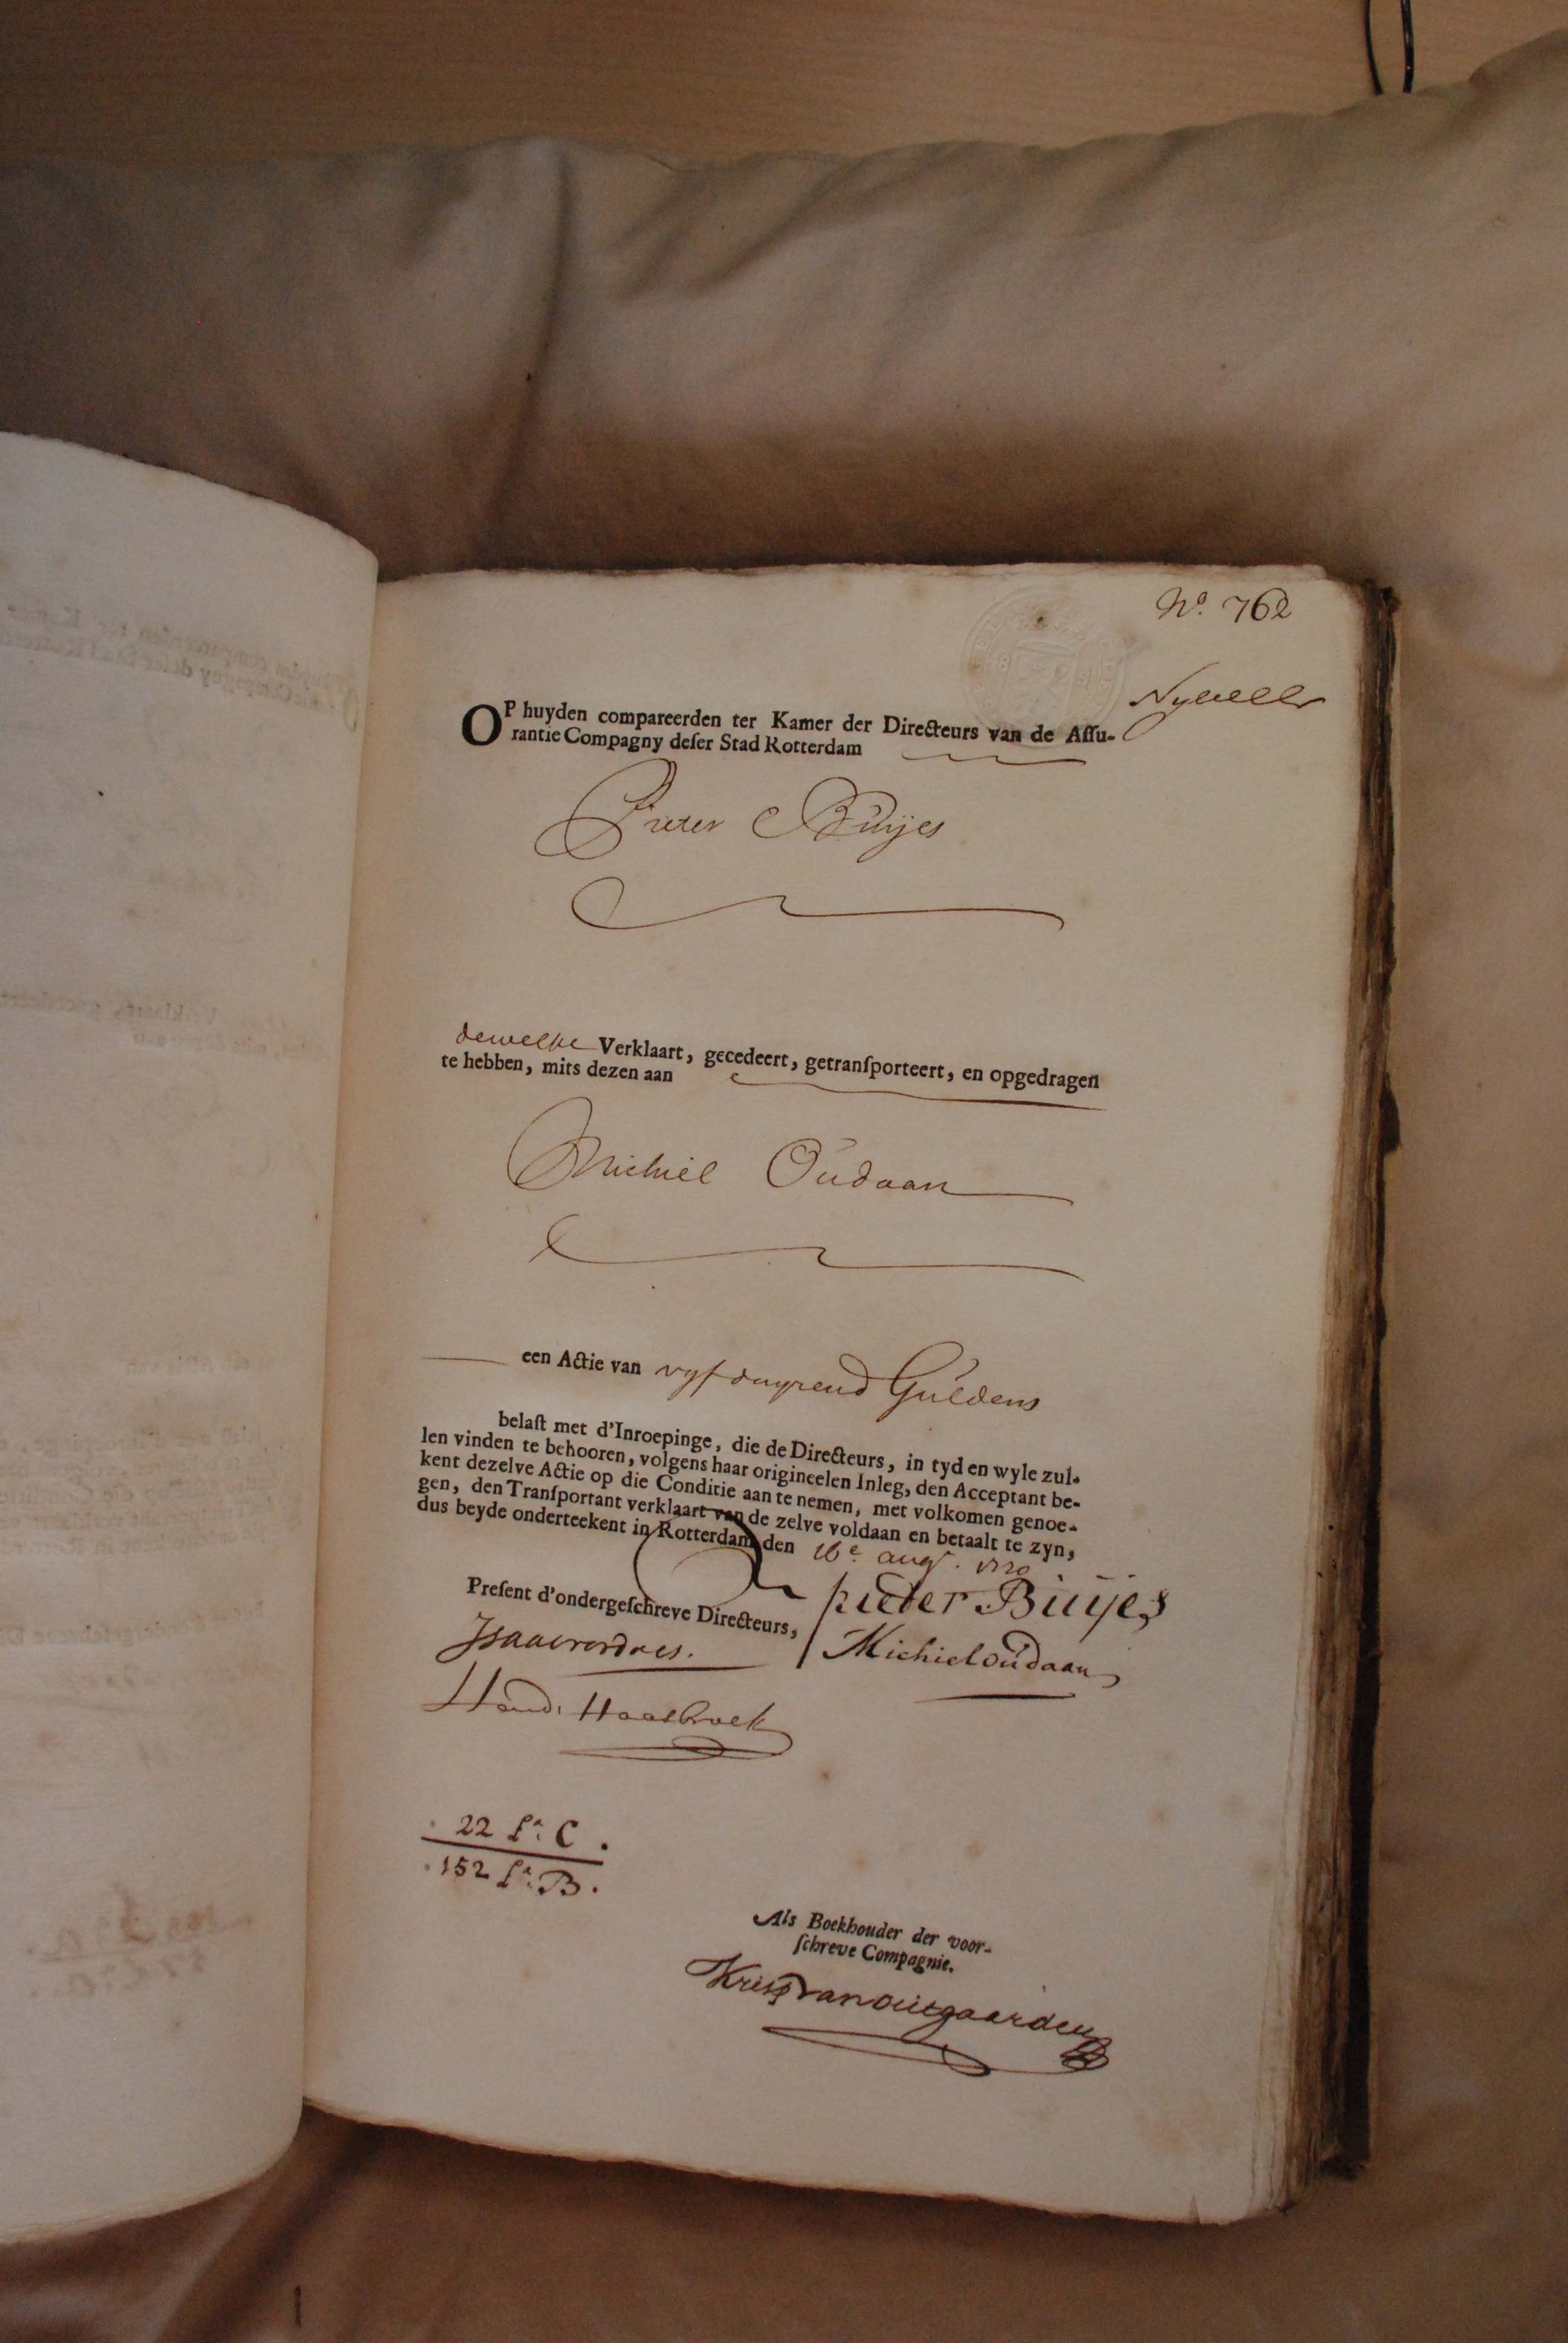 No. 762
Nyvelt
OP huyden compareerden ter Kamer der Directeurs van de Aſſu-
rantie Compagny deſer Stad Rotterdam
Pieter Buijes
dewelke Verklaart, gecedeert, getranſporteert, en opgedragen
te hebben, mits dezen aan
Michiel Oudaan
een Actie van vyf duyzend Guldens
belaſt met d'Inroepinge, die de Directeurs, in tyd en wyle zul-
len vinden te behooren, volgens haar origineelen Inleg, den Acceptant be-
kent dezelve Actie op die Conditie aan te nemen, met volkomen genoe-
gen, den Tranſportant verklaart van de zelve voldaan en betaalt te zyn,
dus beyde onderteekent in Rotterdam den 16e augt. 1720
Preſent d'ondergeſchreve Directeurs,
pieter Buijes
Michiel oudaan
Hend. Haasbroek
22 La. C.
152 La. B.
Als Boekhouder der voor-
ſchreve Compagnie.
Krisp van outgaarden